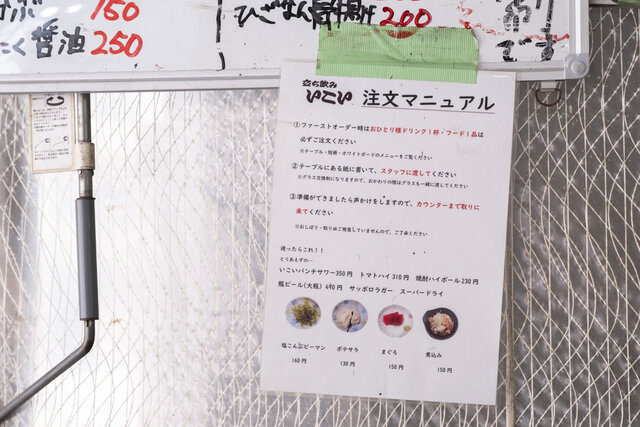 150
ひごなん唐揚げ 200
く醤油 250
です
立ち飲み
いこい 注文マニュアル
①ファーストオーダー時はおひとり様ドリンク1杯・フード1品は
必ずご注文ください
※テーブル・短冊・ホワイトボードのメニューをご覧ください
②テーブルにある紙に書いて、スタッフに渡してください
※グラス交換制になりますので、おかわりの際はグラスも一緒に渡してください
③準備ができましたら声かけをしますので、カウンターまで取りに
来てください
※おしぼり・取り皿ご用意していませんので、ご了承ください
迷ったらこれ！！
とりあえずの…
いこいパンチサワー350円 トマトハイ310円 焼酎ハイボール230円
瓶ビール(大瓶)490円 サッポロラガー スーパードライ
塩こんぶピーマン ポテサラ まぐろ 煮込み
160円 130円 150円 150円